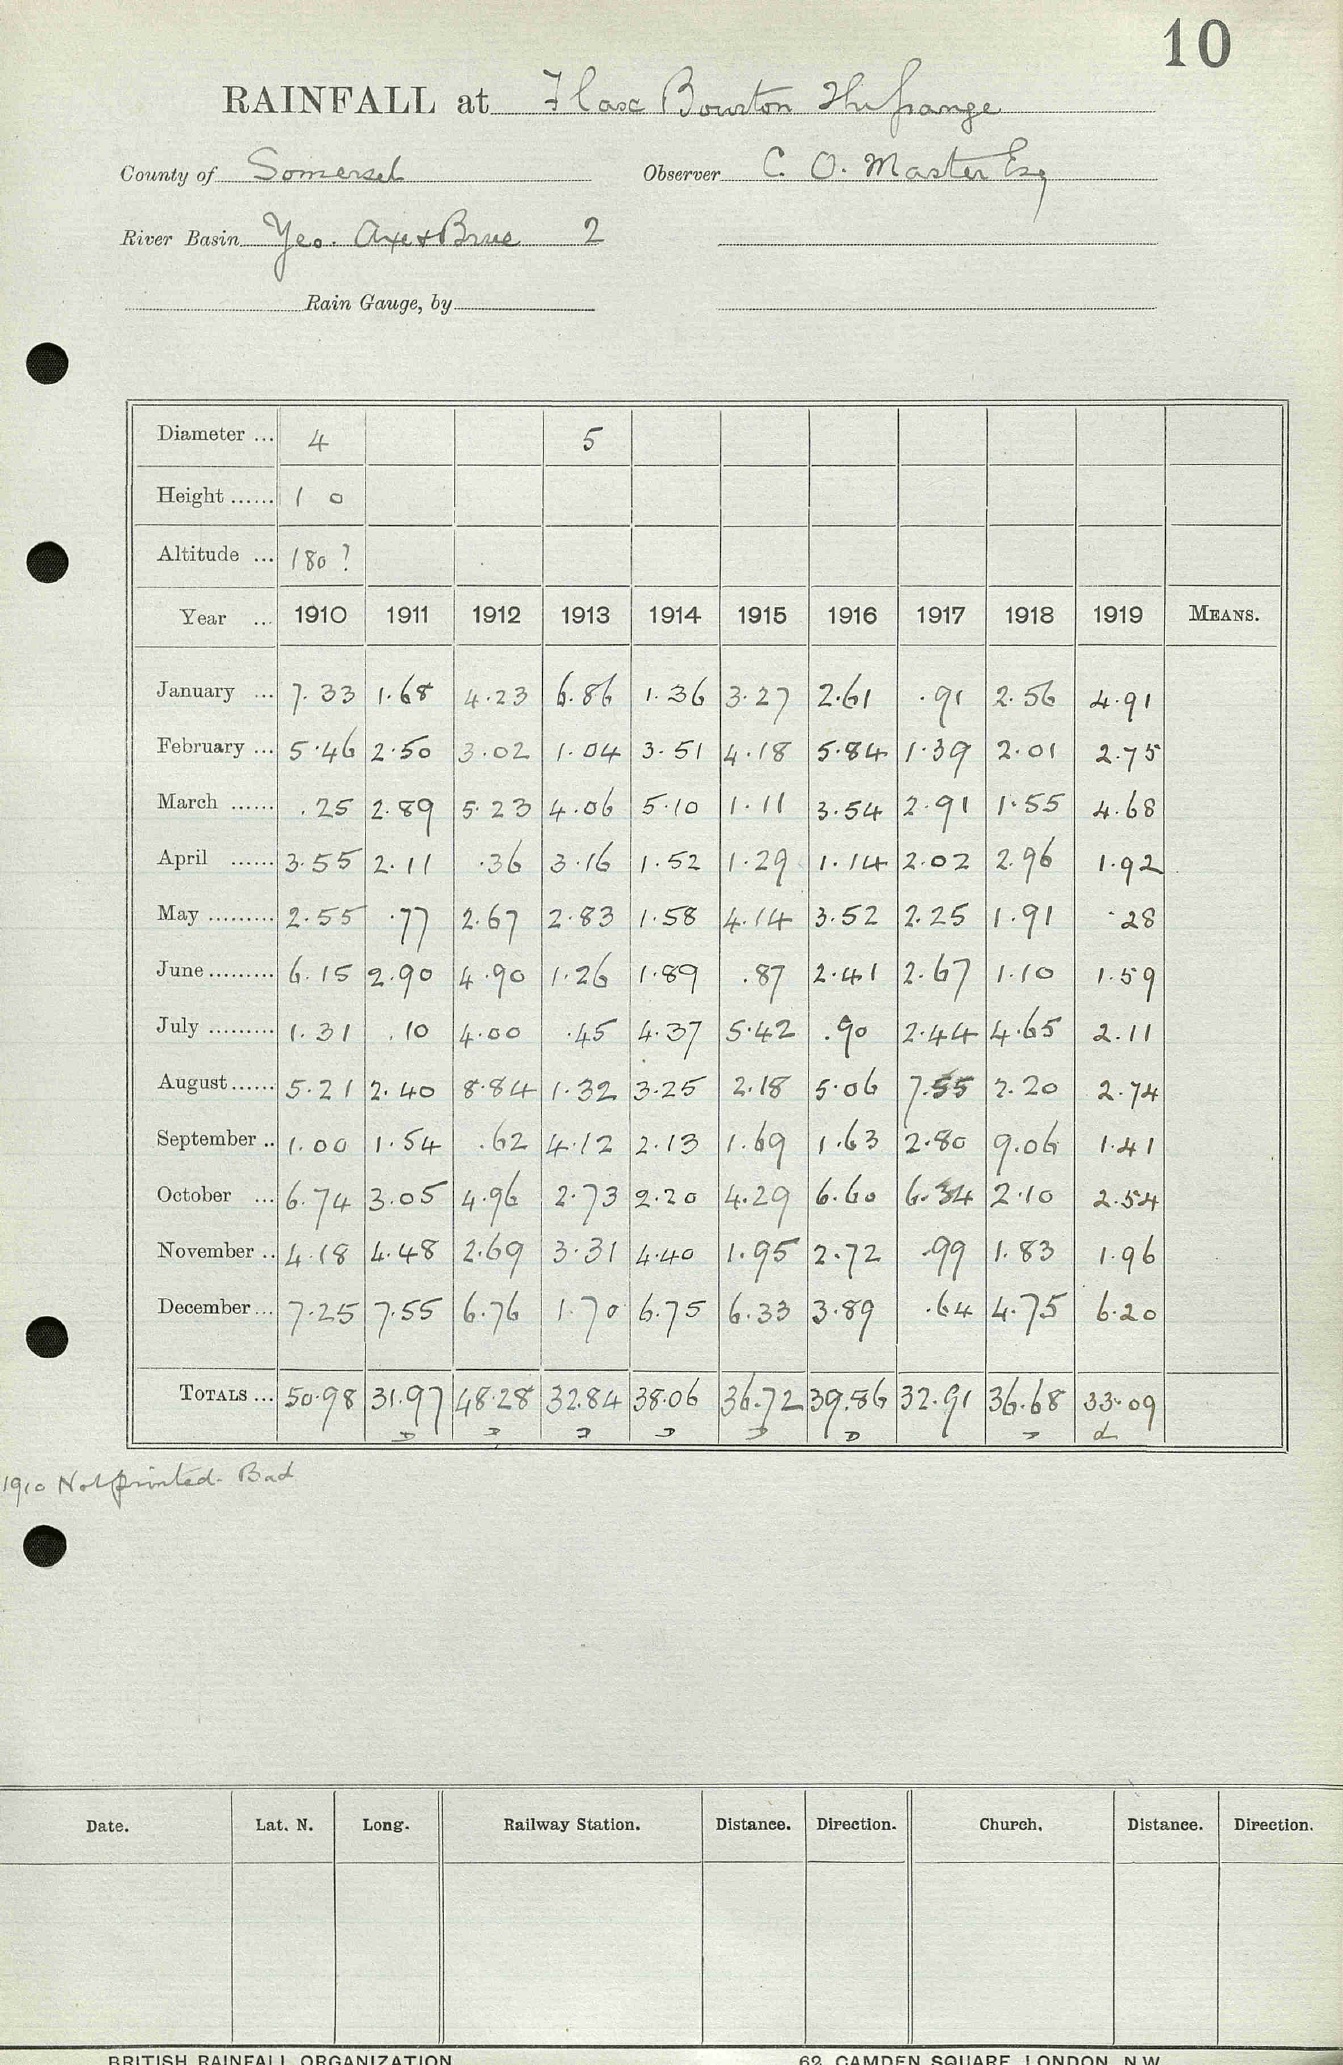 10
RAINFALL at Flax Bourton The Grange
County of Somerset Observer C. O. Master Esq
River Basin Yeo. Axe & Brue 2
Rain Gauge, by
Diameter ... 4 5
Height ...... 1 0
Altitude ... 180 ?
Year ... 1910 1911 1912 1913 1914 1915 1916 1917 1918 1919 MEANS.
January ... 7.33 1.68 4.23 6.86 1.36 3.27 2.61 .91 2.56 4.91
February ... 5.46 2.50 3.02 1.04 3.51 4.18 5.84 1.39 2.01 2.75
March ...... .25 2.89 5.23 4.06 5.10 1.11 3.54 2.91 1.55 4.68
April ...... 3.55 2.11 .36 3.16 1.52 1.29 1.14 2.02 2.96 1.92
May ......... 2.55 .77 2.67 2.83 1.58 4.14 3.52 2.25 1.91 .28
June ......... 6.15 2.90 4.90 1.26 1.89 .87 2.41 2.67 1.10 1.59
July ......... 1.31 .10 4.00 .45 4.37 5.42 .90 2.44 4.65 2.11
August ...... 5.21 2.40 8.84 1.32 3.25 2.18 5.06 7.55 2.20 2.74
September .. 1.00 1.54 .62 4.12 2.13 1.69 1.63 2.80 9.06 1.41
October ... 6.74 3.05 4.96 2.73 2.20 4.29 6.60 6.34 2.10 2.54
November .. 4.18 4.48 2.69 3.31 4.40 1.95 2.72 .99 1.83 1.96
December ... 7.25 7.55 6.76 1.70 6.75 6.33 3.89 .64 4.75 6.20
TOTALS ... 50.98 31.97 48.28 32.84 38.06 36.72 39.86 32.91 36.68 33.09
D D D D D D D d
1910 Not printed. Bad
Date. Lat. N. Long. Railway Station. Distance. Direction. Church. Distance. Direction.
BRITISH RAINFALL ORGANIZATION 62, CAMDEN SQUARE, LONDON, N.W.